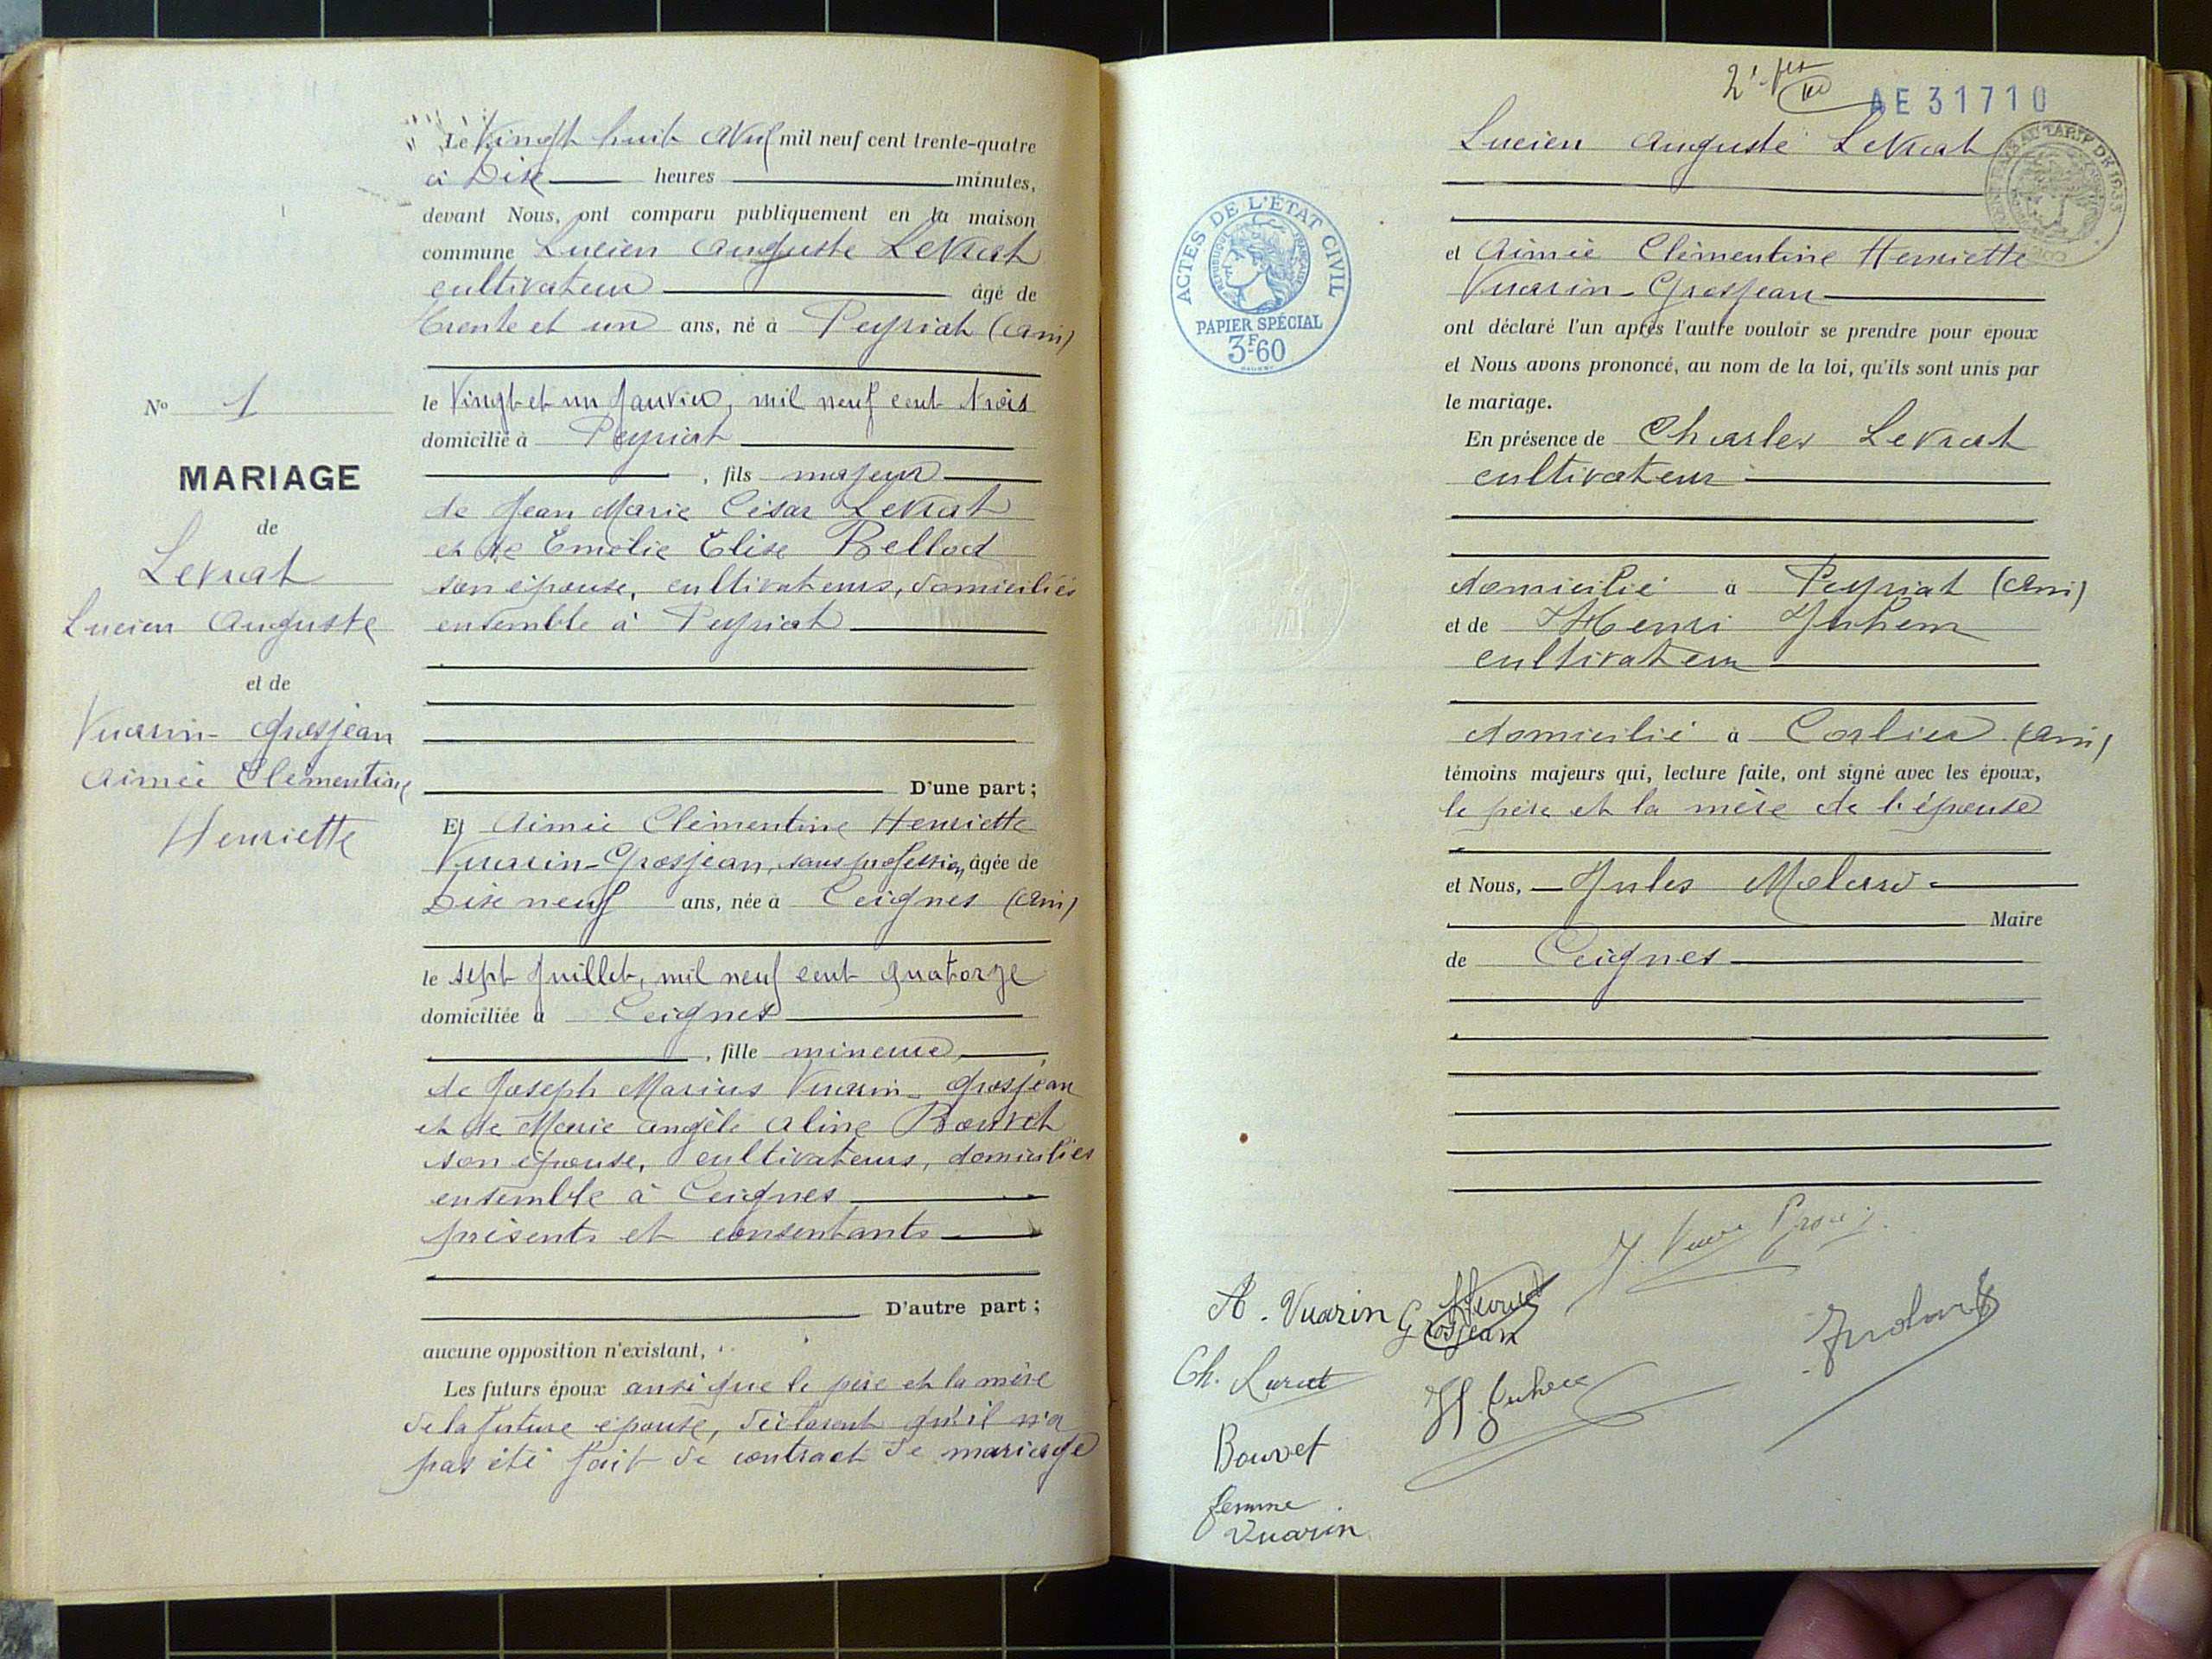 N° 1
MARIAGE
de
Levrat
Lucien Auguste
et de
Vuarin-Grosjean
Aimée Clémentine
Henriette
Le Vingt huit Avril mil neuf cent trente-quatre
à Dix heures minutes,
devant Nous, ont comparu publiquement en la maison
commune Lucien Auguste Levrat
cultivateur âgé de
trente et un ans, né à Peyriat (Ain)
le Vingt et un Janvier, mil neuf cent trois
domicilié à Peyriat
, fils majeur
de Jean Marie César Levrat
et de Emélie Elise Bellod
son épouse, cultivateurs, domiciliés
ensemble à Peyriat
D'une part ;
Et Aimée Clémentine Henriette
Vuarin-Grosjean, sans profession, âgée de
Dix neuf ans, née à Ceignes (Ain)
le sept Juillet, mil neuf cent quatorze
domiciliée à Ceignes
, fille mineure
de Joseph Marius Vuarin-Grosjean
et de Marie Angèle Aline Bouvet
son épouse, cultivateurs, domiciliés
ensemble à Ceignes
présents et consentants
D'autre part ;
aucune opposition n'existant,
Les futurs époux ansi que le père et la mère
de la future épouse, déclarent qu'il n'a
pas été fait de contract de mariage
AE 31710
ACTES DE L'ÉTAT CIVIL
RÉPUBLIQUE FRANÇAISE
PAPIER SPÉCIAL
3F60
AU TARIF DE 1933
Lucien Auguste Levrat
et Aimée Clémentine Henriette
Vuarin-Grosjean
ont déclaré l'un après l'autre vouloir se prendre pour époux
et Nous avons prononcé, au nom de la loi, qu'ils sont unis par
le mariage.
En présence de Charles Levrat
cultivateur
domicilié à Peyriat (Ain)
et de Henri Juhem
cultivateur
domicilié à Corlier (Ain)
témoins majeurs qui, lecture faite, ont signé avec les époux,
le père et la mère de l'épouse
et Nous, Jules
Maire
de Ceignes
A. Vuarin Grosjean
Ch. Levrat
H. Juhem
Bouvet
femme
Vuarin